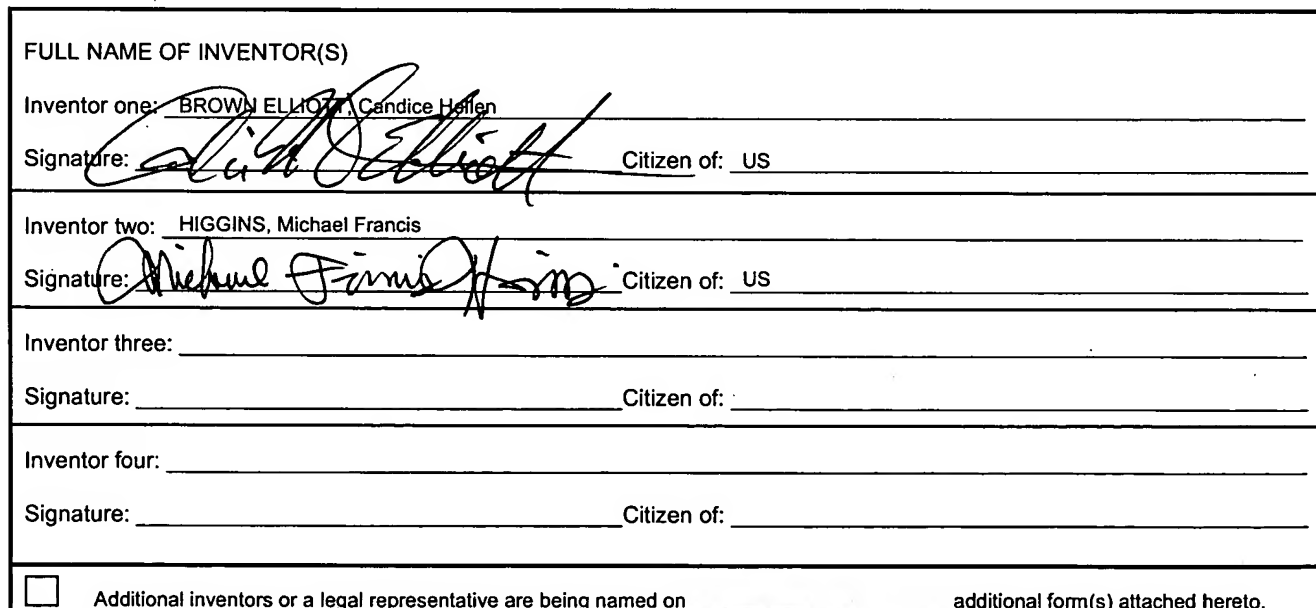 FULL NAME OF INVENTOR(S)
Inventor one: BROWN ELLIOTT, Candice Hellen
Signature: Elliott Citizen of: US
Inventor two: HIGGINS, Michael Francis
Signature: Michael Francis Higgins Citizen of: US
Inventor three:
Signature: Citizen of:
Inventor four:
Signature: Citizen of:
Additional inventors or a legal representative are being named on additional form(s) attached hereto.